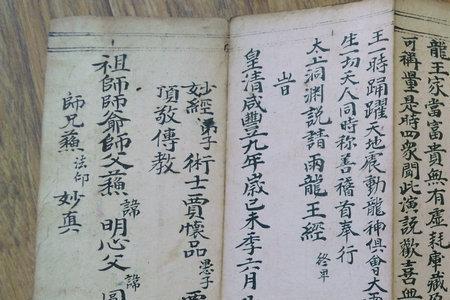 龍王家當富貴無有虛耗庫藏
可稱量是時四衆聞此演説歡喜無
王一時踴躍天地震動龍神俱會大
生一切天人同時称善稽首奉行
太上洞淵説請雨龍王經 終畢
旹
皇清咸豐九年歲己未季六月
妙經弟子術士賈懷品愚子
頂敬傳教
祖師師爺師父蘓諱明心父諱
師兄蘓法印妙真